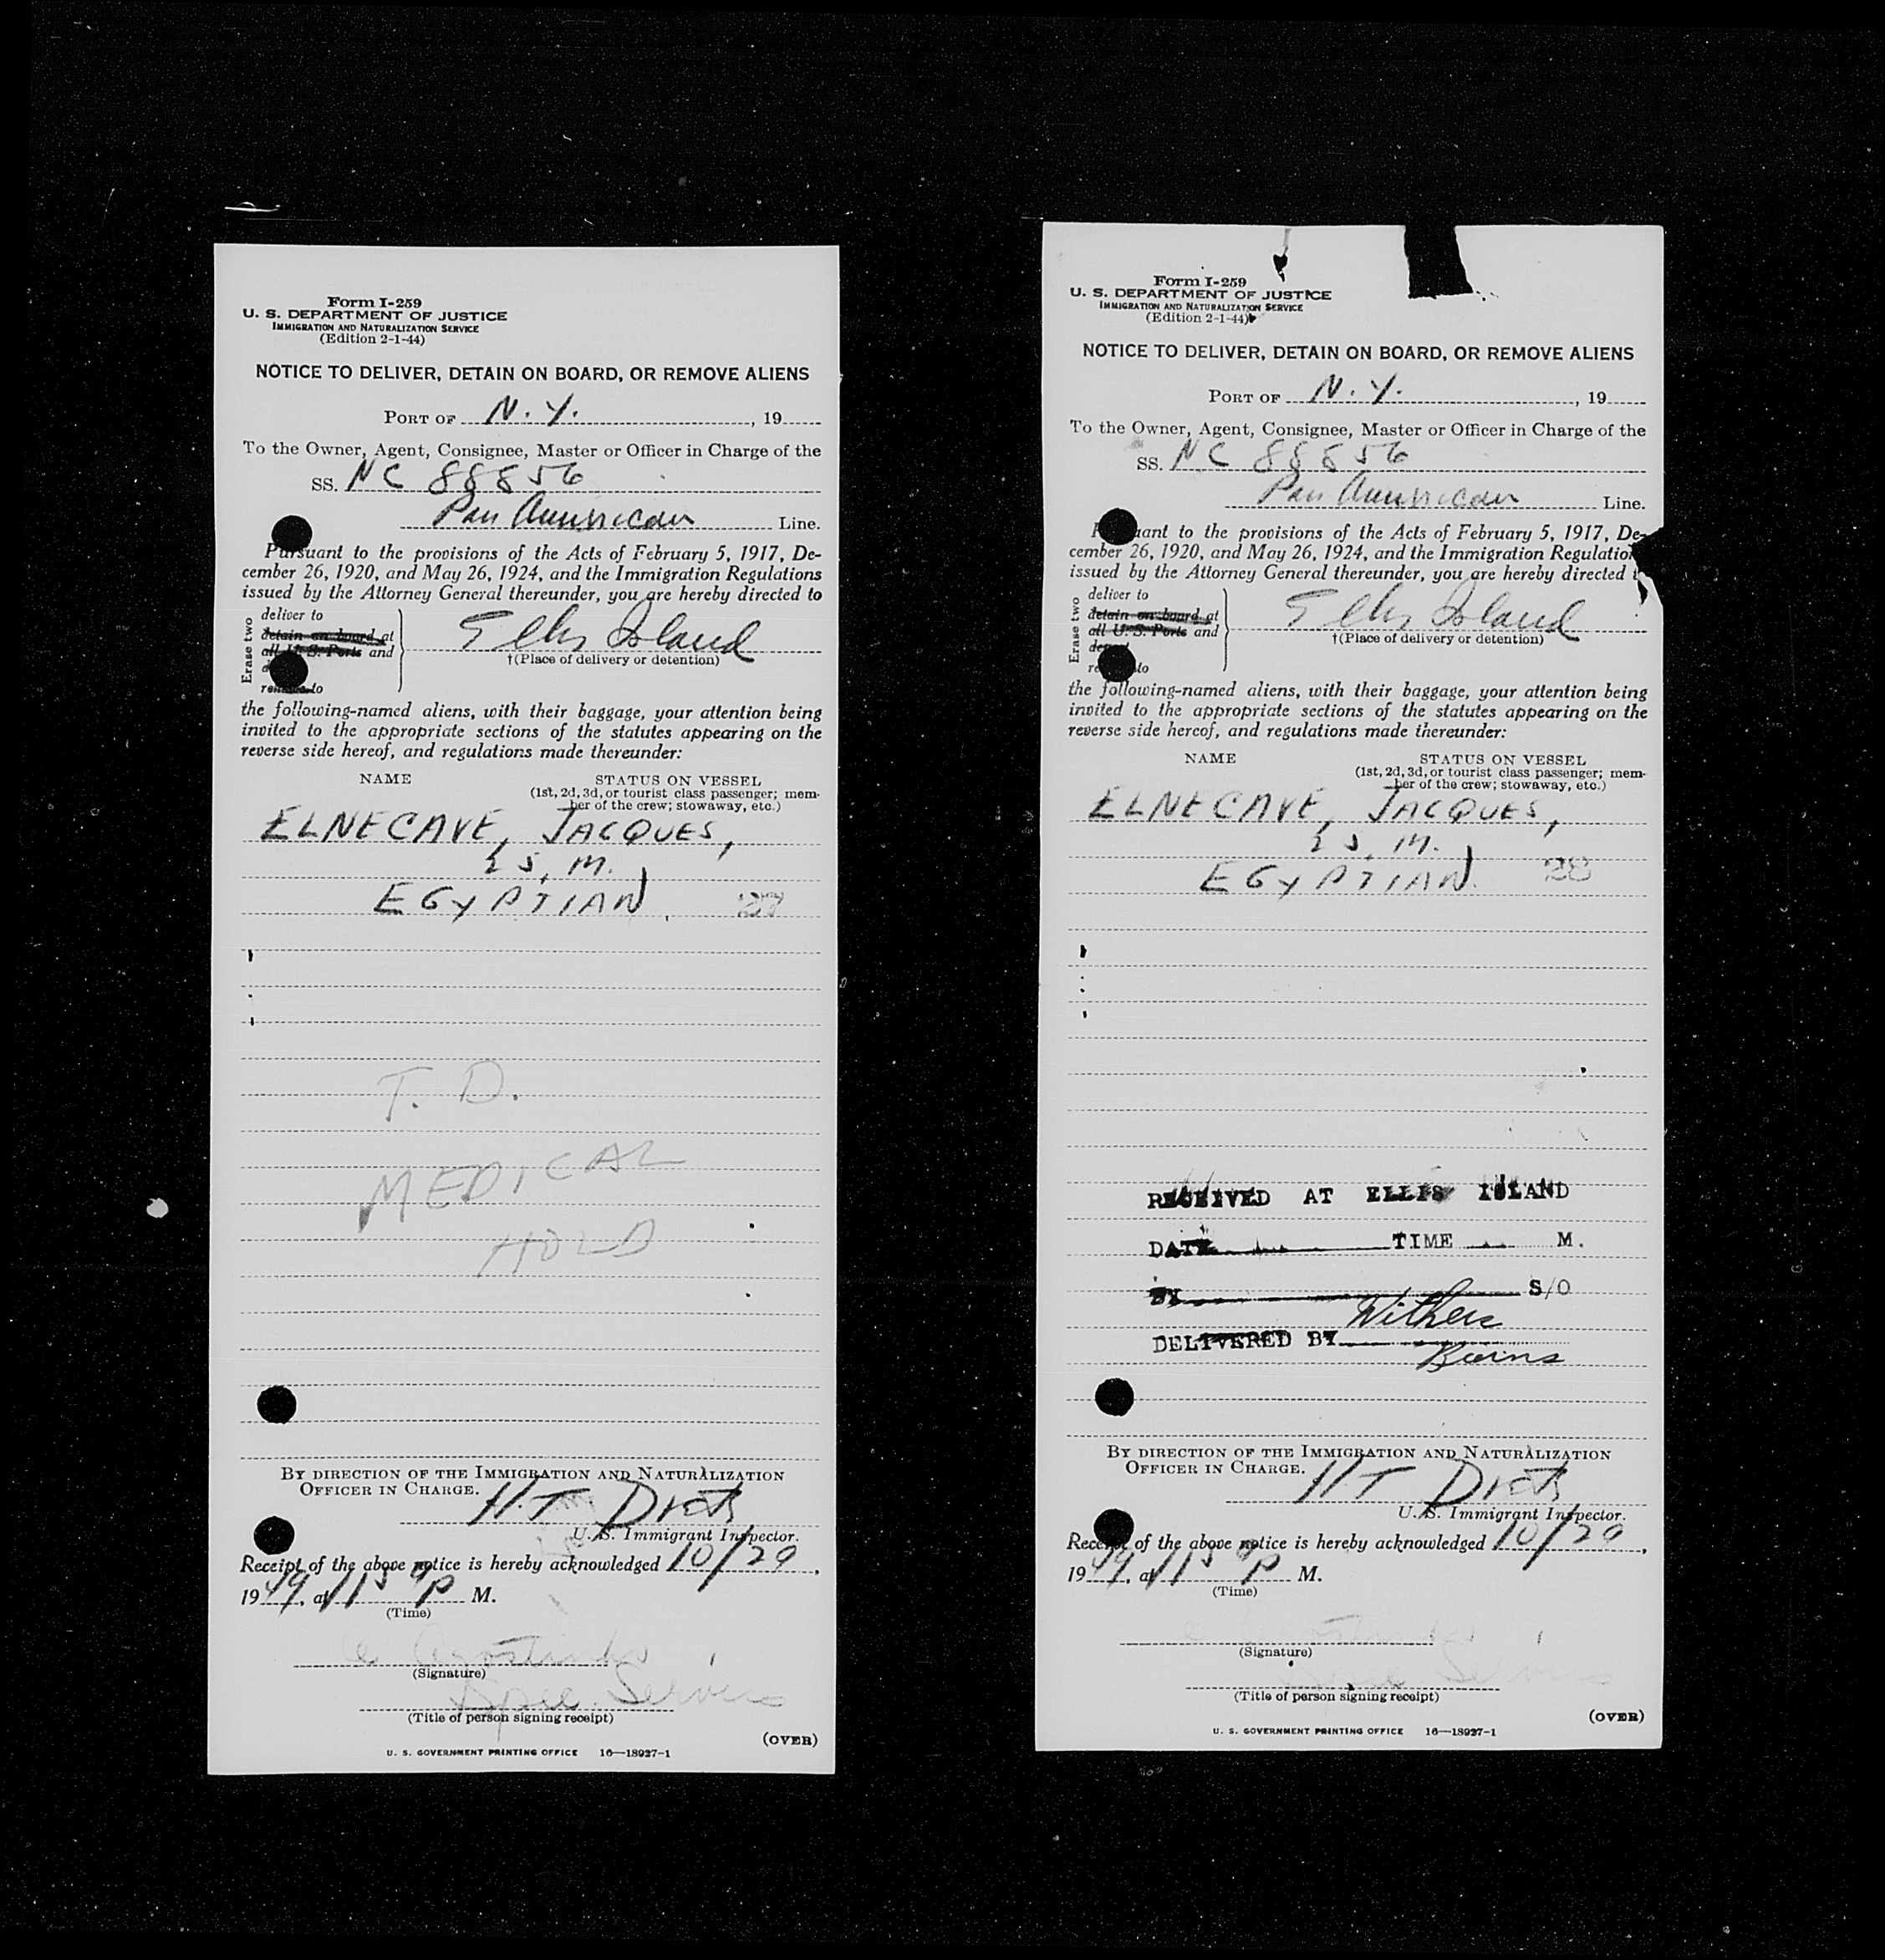 Form I-259
U. S. DEPARTMENT OF JUSTICE
IMMIGRATION AND NATURALIZATION SERVICE
(Edition 2-1-44)
NOTICE TO DELIVER, DETAIN ON BOARD, OR REMOVE ALIENS
PORT OF N. Y. , 19
To the Owner, Agent, Consignee, Master or Officer in Charge of the
SS. NC 88856
Pan American Line.
Pursuant to the provisions of the Acts of February 5, 1917, De-
cember 26, 1920, and May 26, 1924, and the Immigration Regulations
issued by the Attorney General thereunder, you are hereby directed to
Erase two
deliver to
detain on board at
all U. S. Ports and
remove to
Ellis Island
†(Place of delivery or detention)
the following-named aliens, with their baggage, your attention being
invited to the appropriate sections of the statutes appearing on the
reverse side hereof, and regulations made thereunder:
NAME STATUS ON VESSEL
(1st, 2d, 3d, or tourist class passenger; mem-
ber of the crew; stowaway, etc.)
ELNECAVE, JACQUES,
25, M.
EGYPTIAN
T. D.
MEDICAL
HOLD
BY DIRECTION OF THE IMMIGRATION AND NATURALIZATION
OFFICER IN CHARGE.
H.T
U. S. Immigrant Inspector.
Receipt of the above notice is hereby acknowledged 10/29,
1949, at 115 P M.
(Time)
(Signature)
(Title of person signing receipt)
(OVER)
U. S. GOVERNMENT PRINTING OFFICE 16—18927-1
Form I-259
U. S. DEPARTMENT OF JUSTICE
IMMIGRATION AND NATURALIZATION SERVICE
(Edition 2-1-44)
NOTICE TO DELIVER, DETAIN ON BOARD, OR REMOVE ALIENS
PORT OF N. Y. , 19
To the Owner, Agent, Consignee, Master or Officer in Charge of the
SS. NC 88856
Pan American Line.
to the provisions of the Acts of February 5, 1917, De-
cember 26, 1920, and May 26, 1924, and the Immigration Regulation
issued by the Attorney General thereunder, you are hereby directed
Erase two
deliver to
detain on board at
all U. S. Ports and
to
Ellis Island
†(Place of delivery or detention)
the following-named aliens, with their baggage, your attention being
invited to the appropriate sections of the statutes appearing on the
reverse side hereof, and regulations made thereunder:
NAME STATUS ON VESSEL
(1st, 2d, 3d, or tourist class passenger; mem-
ber of the crew; stowaway, etc.)
ELNECAVE, JACQUES,
25, M.
EGYPTIAN 28
RECEIVED AT ELLIS ISLAND
DATE TIME M.
BY S/O
Withers
DELIVERED BY
Burns
BY DIRECTION OF THE IMMIGRATION AND NATURALIZATION
OFFICER IN CHARGE.
H.T
U. S. Immigrant Inspector.
Receipt of the above notice is hereby acknowledged 10/29,
1949, at 115 P M.
(Time)
(Signature)
(Title of person signing receipt)
(OVER)
U. S. GOVERNMENT PRINTING OFFICE 16—18927-1